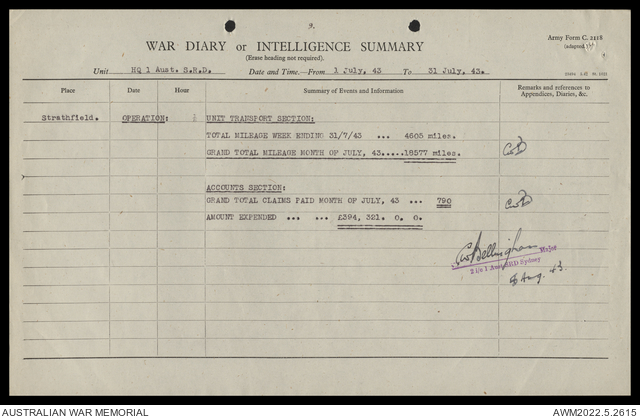 9.
Army Form C. 2118
(adapted)
WAR DIARY or INTELLIGENCE SUMMARY
(Erase heading not required).
Unit HQ 1 Aust. S.R.D. Date and Time.—From 1 July, 43 To 31 July, 43.
Place Date Hour Summary of Events and Information Remarks and references to Appendices, Diaries, &c.
Strathfield. OPERATION: UNIT TRANSPORT SECTION:
TOTAL MILEAGE WEEK ENDING 31/7/43 ... 4605 miles.
GRAND TOTAL MILEAGE MONTH OF JULY, 43.....18577 miles.
ACCOUNTS SECTION:
GRAND TOTAL CLAIMS PAID MONTH OF JULY, 43 ... 790
AMOUNT EXPENDED ... ... £394, 321. 0. 0.
CWBellingham Major
2 i/c 1 Aust SRD Sydney
Aug. 43.
AUSTRALIAN WAR MEMORIAL AWM2022.5.2615